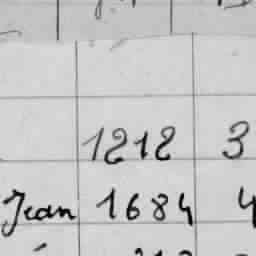 1212 3
Jean 1684 4